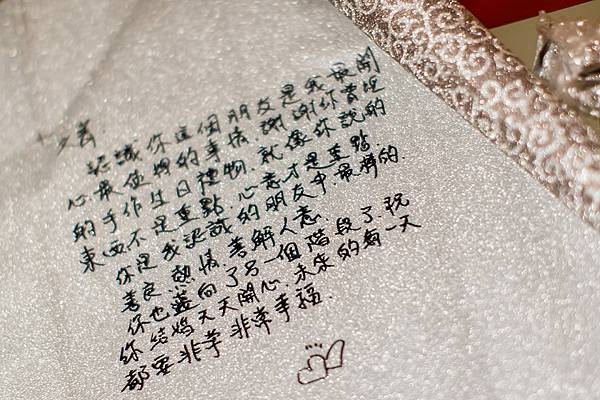 認識你這個朋友是我最開
心.最值得的事情.謝謝你曾經
的手作生日禮物.就像你說的
東西不是重點.心意才是重點
你是我認識的朋友中.最棒的.
善良.熱情.善解人意.
你也邁向了另一個階段了.祝
你結婚天天開心.未來的每一天
都要非常非常幸福.